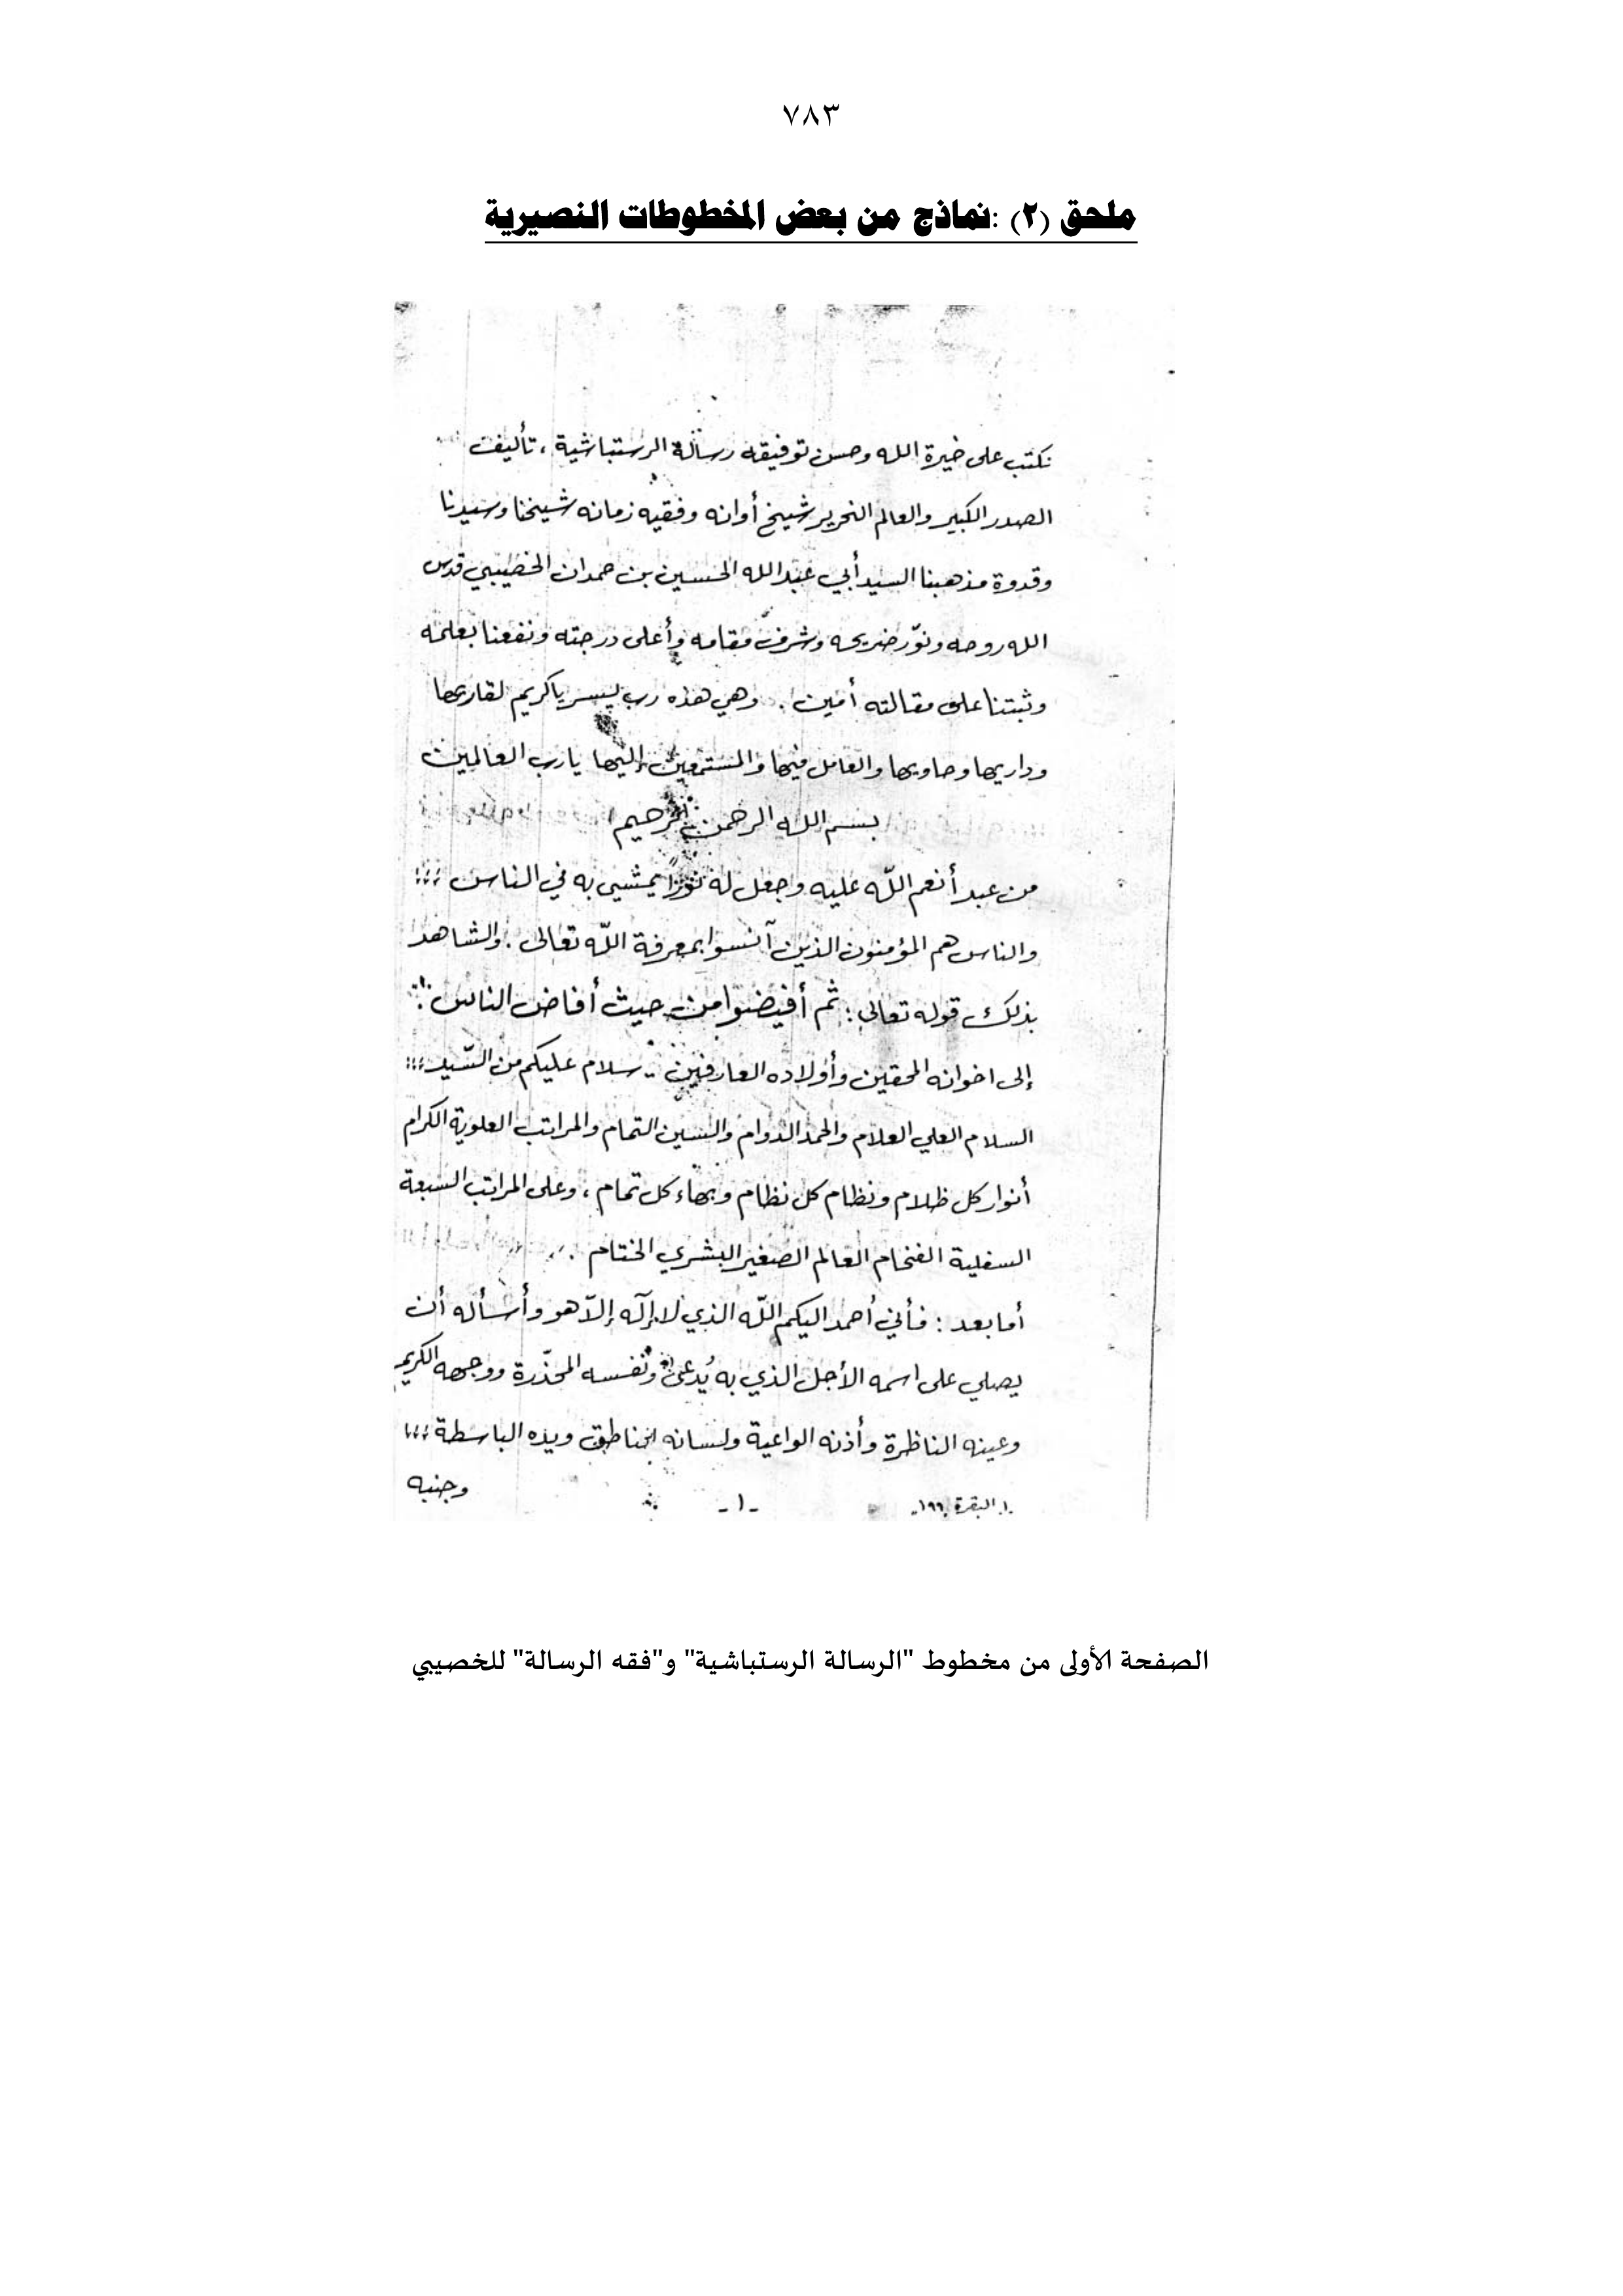 ٧٨٣
ملحق (٢) :نماذج من بعض المخطوطات النصيرية
نكتب على خيرة الله وحسن توفيقه رسالة الرستباشية ، تأليف
الصدر الكبير والعالم النحرير شيخ أوانه وفقيه زمانه شيخنا وسيدنا
وقدوة مذهبنا السيد أبي عبد الله الحسين بن حمدان الخصيبي قدس
الله روحه ونوّر ضريحه وشرف مقامه وأعلى درجته ونفعنا بعلمه
وثبتنا على مقالته أمين . وهي هذه رب يسر يا كريم لقاريها
وداريها وحاويها والعامل فيها والمستمعين إليها يا رب العالمين
بسم الله الرحمن الرحيم
من عبد أنعم اللّه عليه وجعل له نوراً يمشي به في الناس
والناس هم المؤمنون الذين آنسوا بمعرفة اللّه تعالى . والشاهد
بذلك قوله تعالى : ثم أفيضوا من حيث أفاض الناس
إلى اخوانه المحقين وأولاده العارفين .. سلام عليكم من السّيد
السلام العلي العلام والحمد الدوام والسين التمام والمراتب العلوية الكرام
أنوار كل ظلام ونظام كل نظام وبهاء كل تمام ، وعلى المراتب السبعة
السفلية الفخام العالم الصغير البشري الختام .
أما بعد : فأني أحمد اليكم اللّه الذي لا إله إلاّ هو وأسأله أن
يصلي على اسمه الأجل الذي به يُدعى ونفسه المحذّرة ووجهه الكريم
وعينه الناظرة وأذنه الواعية ولسانه الناطق ويده الباسطة
وجنبه
١. البقرة ١٩٩.
- ١ -
الصفحة الأولى من مخطوط "الرسالة الرستباشية" و"فقه الرسالة" للخصيبي